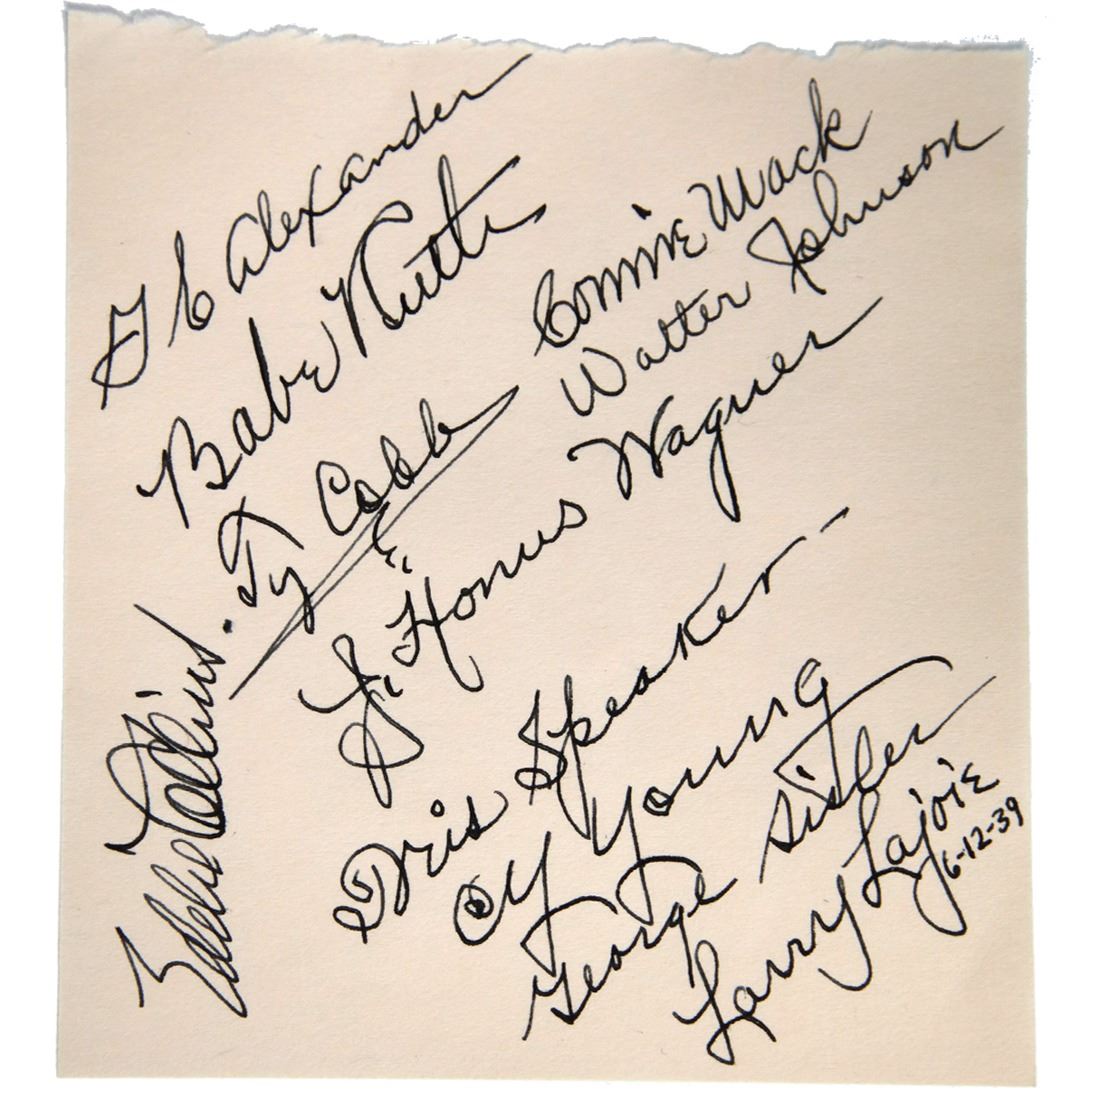 G C Alexander
Babe Ruth
Ty Cobb
Eddie Collins.
Connie Mack
Walter Johnson
J. Honus Wagner
Tris Speaker
Cy Young
George Sisler
Larry Lajoie
6-12-39